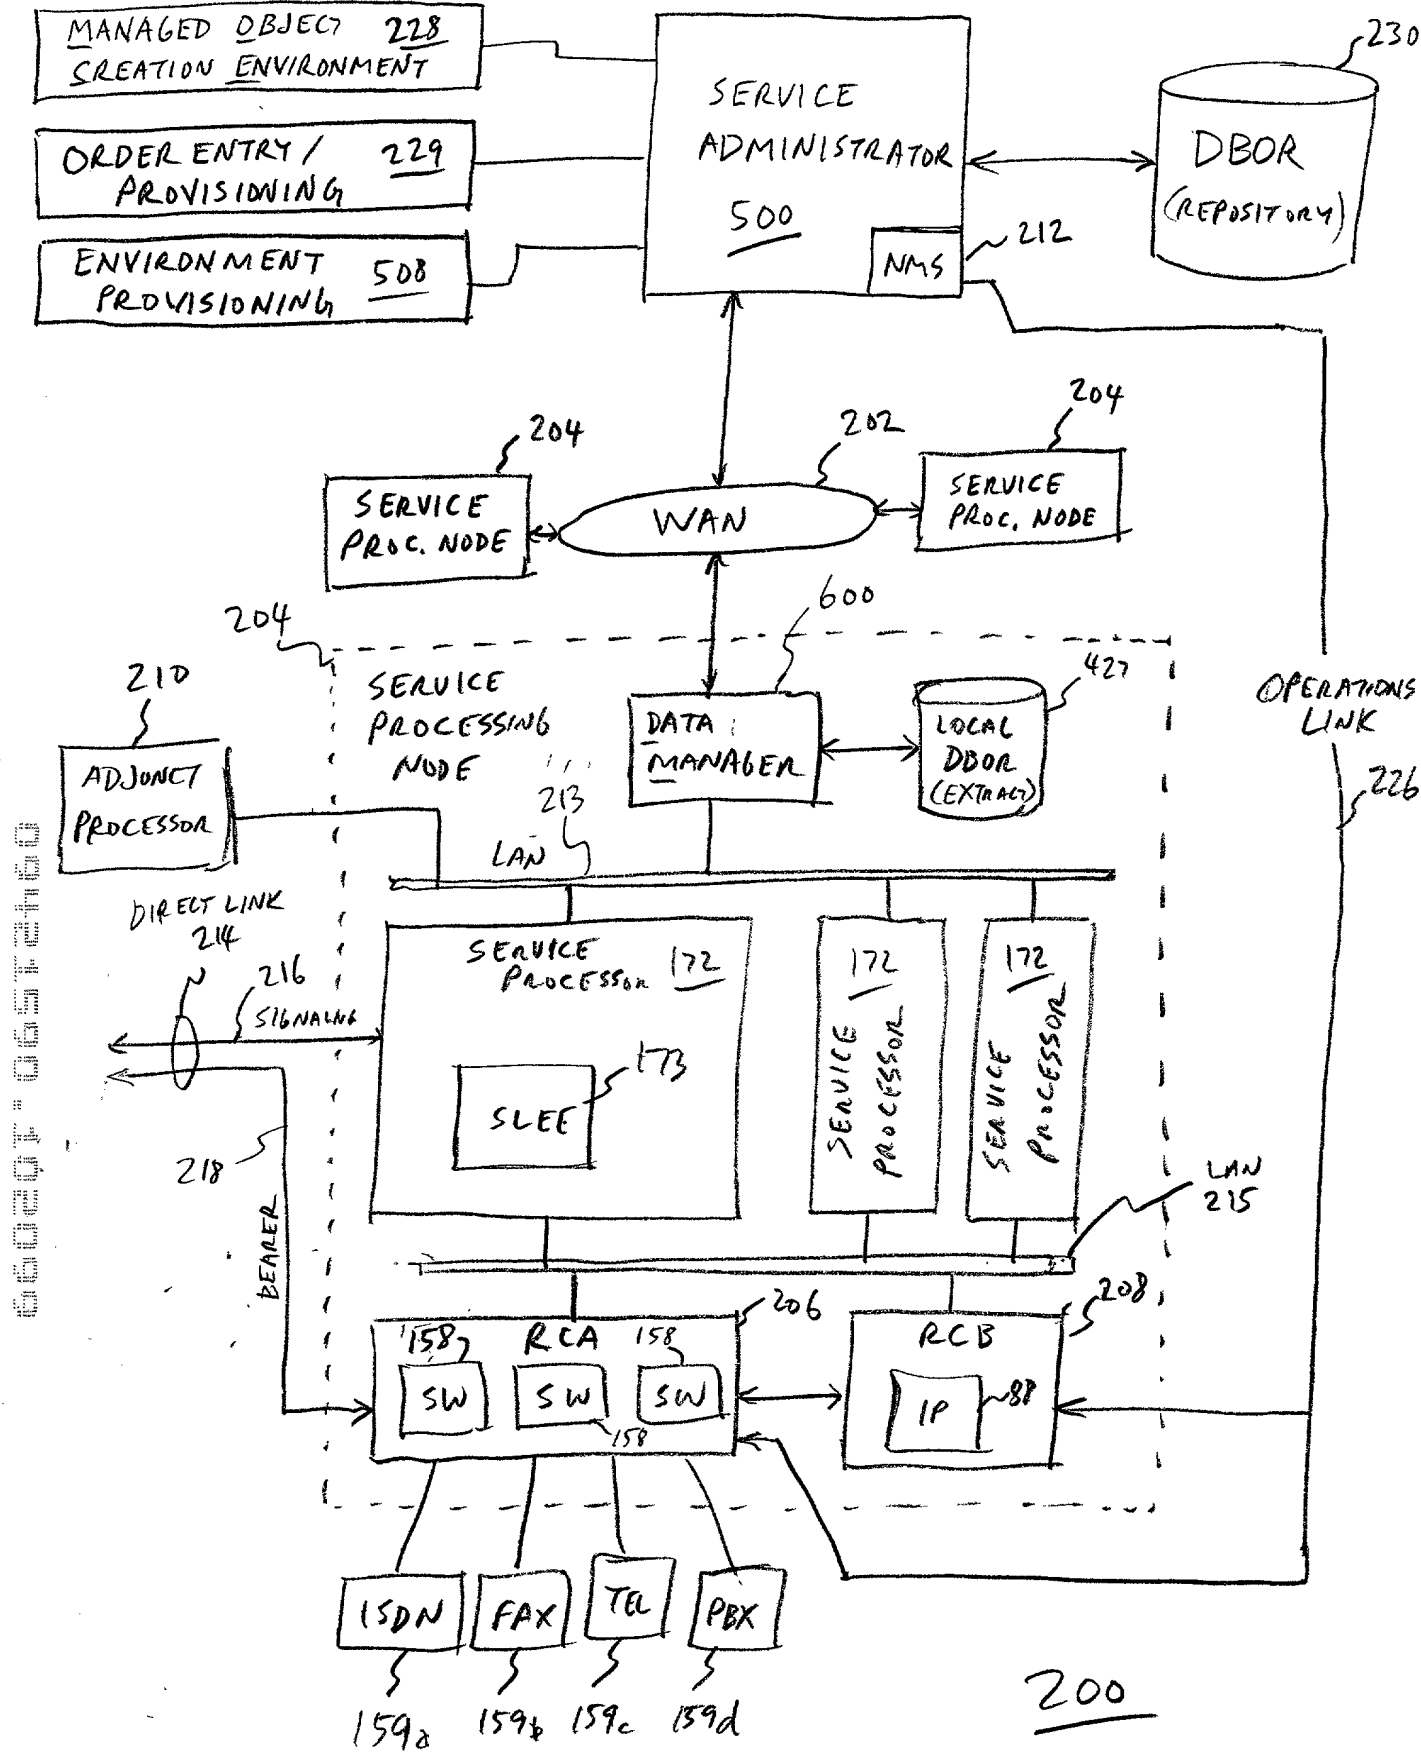 MANAGED OBJECT 228
CREATION ENVIRONMENT
ORDER ENTRY / 229
PROVISIONING
ENVIRONMENT 508
PROVISIONING
SERVICE
ADMINISTRATOR
500
NMS
212
230
DBOR
(REPOSITORY)
204
SERVICE
PROC. NODE
202
WAN
204
SERVICE
PROC. NODE
204
SERVICE
PROCESSING
NODE
600
DATA
MANAGER
427
LOCAL
DBOR
(EXTRACT)
OPERATIONS
LINK
226
210
ADJUNCT
PROCESSOR
213
LAN
DIRECT LINK
214
216
SIGNALNG
218
BEARER
SERVICE
PROCESSOR 172
173
SLEE
172
SERVICE
PROCESSOR
172
SERVICE
PROCESSOR
LAN
215
206
RCA
158
SW
SW
158
158
SW
208
RCB
IP
88
ISDN
FAX
TEL
PBX
159a
159b
159c
159d
200
09421590.102099